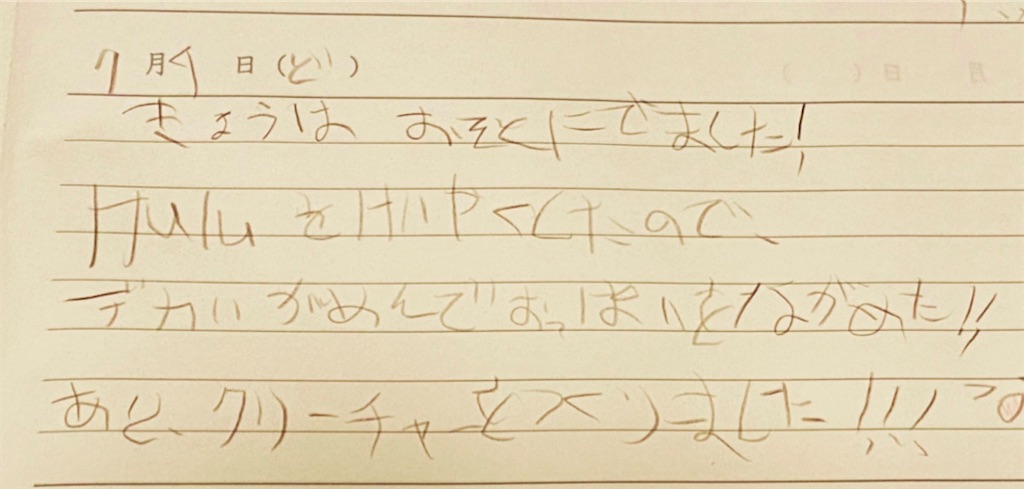 7月9日(ど)
きょうは おそとにでました!
Huluをけいやくしたので、
デカいがめんでおっぱいをながめた!!
あと、クリーチャーをつくりました!!!